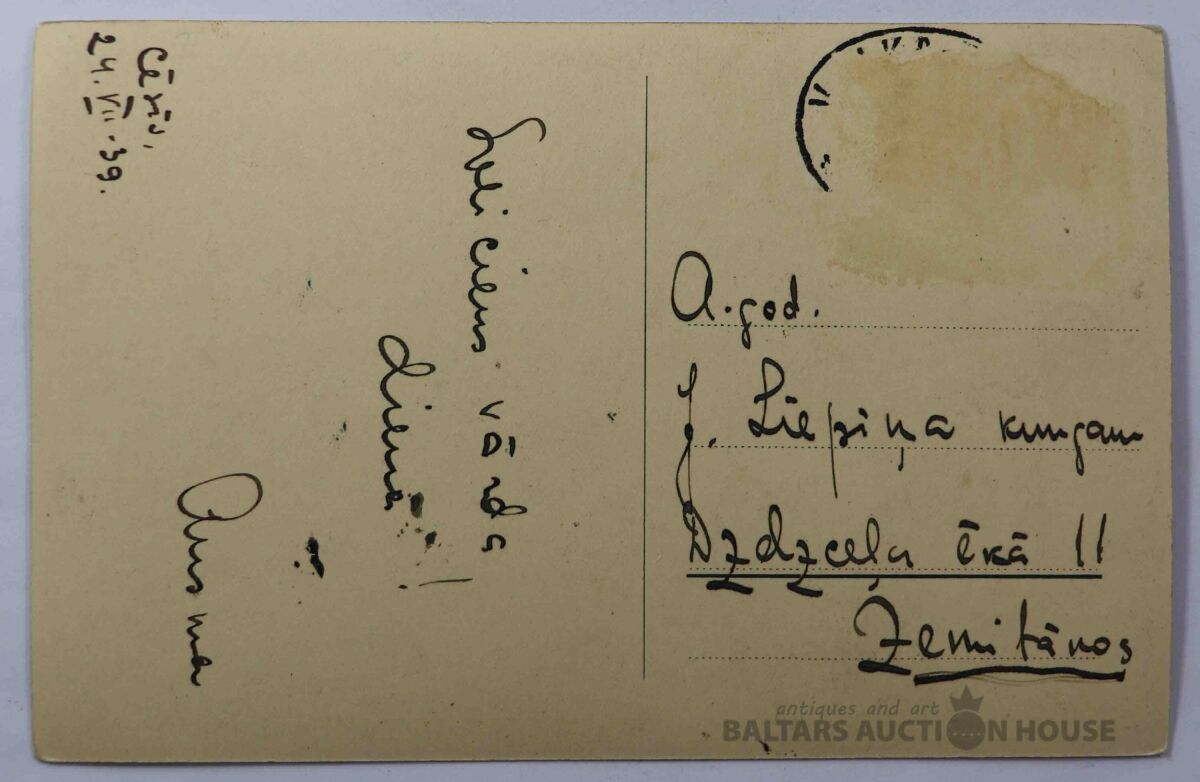 Cēsīs,
24. VII. 39.
Sveiciens vārda
dienā!
Ausma
A. god.
J. Liepiņa kungam
Dzdzceļa ēkā 11
Zemitānos
antiques and art
BALTARS AUCTION HOUSE